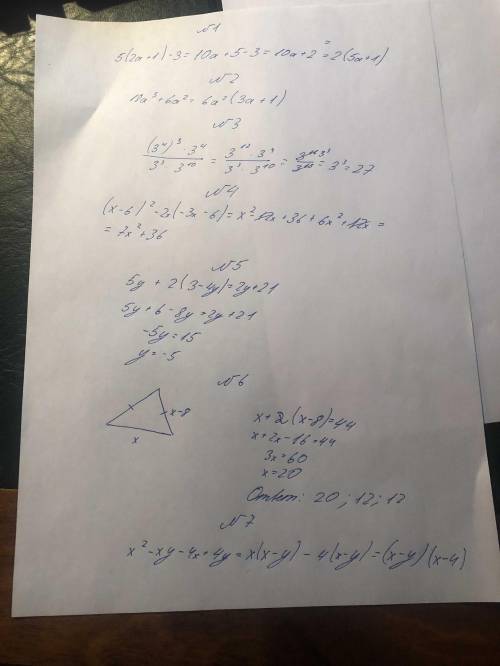 №1
5(2a+1)-3=10a+5-3=10a+2=2(5a+1)
№2
18a³+6a²=6a²(3a+1)
№3
(3⁴)³·3⁴ / 3³·3¹⁰ = 3¹²·3⁴ / 3³·3¹⁰ = = 3³=27
№4
(x-6)²-2x(-3x-6)=x²-12x+36+6x²+12x=
=7x²+36
№5
5y+2(3-4y)=2y+21
5y+6-8y=2y+21
-5y=15
y=-5
№6
x-8
x
x+2(x-8)=44
x+2x-16=44
3x=60
x=20
Ответ: 20; 12; 12
№7
x²-xy-4x+4y=x(x-y)-4(x-y)=(x-y)(x-4)